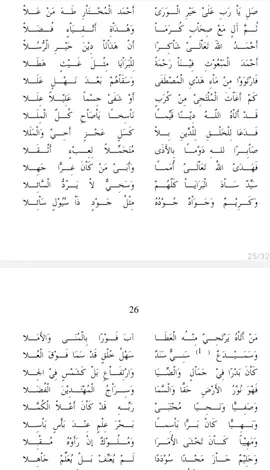 صَلِّ يَا رَبِ عَلَىٰ خَيْرِ الْوَرَىٰ أَحْمَدَ الْمُخْتَارِ طٰهَ مَنْ عَلَا
ثُمَّ آلٍ مَعَ صِحَابٍ كُرَمَا وَهُدَاةٍ أَتْقِيَاءٍ فُضَلَا
أَحْمَدُ اللهَ تَعَالَىٰ شَاكِرًا أَنْ هَدَانَا دِيْنَ خَيْرِ الرُّسُلَا
أَحْمَدَ الْمَبْعُوْثِ فِيْنَا رَحْمَةً لِلْبَرَايَا مِثْلَ غَيْثٍ هَطَلَا
فَارْتَوَوْا مِنْ مَاءِ هَدْيِ الْمُصْطَفَىٰ وَسَقَاهُمْ بَعْدَ نَهْلٍ عَلَلَا
كَمْ أَغَاثَ الْمُلْتَجِيْ مِنْ كَرْبٍ أَوْ شَفَىٰ جِسْمًا عَلِيْلًا
قَدْ أَتَاهُ اللهُ دِيْنًا قَيِّمًا نَاسِخًا يَا صَاحِ كُلَّ الْمِلَلَا
فَدَعَا لِلْخَلْقِ لِلدِّيْنِ بِلَا كَسَلٍ عَجْزٍ أَخِيْ وَالْمَلَلَا
صَابِرًا لِلهِ دَوْمًا بِالْأَذَىٰ مُتَحَمِّلًا لِعِبْءٍ أَثْقَلَا
فَهَدَىٰ اللهُ تَعَالَىٰ أُمَمًا وَأَبَىٰ مَنْ كَانَ غِرًّا جَهِلَا
سَيِّدٌ سَادَ الْبَرَايَا كُلَّهُمْ وَسَخِيٌّ لَا يَرُدُّ السَّائِلَا
وَكَرِيْمٌ وَجَوَادٌ جُوْدُهُ مِثْلُ جَوْدٍ ذَا سُيُوْلٍ سَائِلَا
25/32
26
مَنْ أَتَاهُ يَرْتَجِيْ مِنْهُ الْعَطَا آبَ فَوْرًا بِالْمُنَىٰ وَالْأَمَلَا
وَسَمَيْدَعٌ (١) سَنِيٌّ سَنَدٌ سَهْلُ خُلْقٍ قَدْ سَمَا فَوْقَ الْعُلَا
كَانَ بَدْرًا فِيْ جَمَالٍ وَالضِّيَا وَارْتِفَاعٍ بَلْ كَشَمْسٍ فِيْ الْجَلَا
فَهُوَ نُوْرُ الْأَرْضِ حَقًّا وَالسَّمَا وَسِرَاجُ الْمُهْتَدِيْنَ الْفُضَلَا
وَصَفِيًّا وَنَجِيًّا مُجْتَبًى رَبَّهُ قَدْ كَانَ أَعْلَا الْكُمَّلَا
وَبَهِيًّا كَانَ بَرًّا بِاسِمًا بَحْرَ عِلْمٍ عِنْدَ بَأْسٍ بَاسِلَا
وَمَهِيْبًا كَانَ تَخْشَى الْأُمَرَا وَمُلُوْكٌ إِنْ رَأَوْهُ مُقْبِلَا
وَحَلِيْمٌ حَازَ مَجْدًا سُؤْدَدًا لَمْ يُعَنِّفْ بَلْ يُعَلِّمْ جَاهِلَا